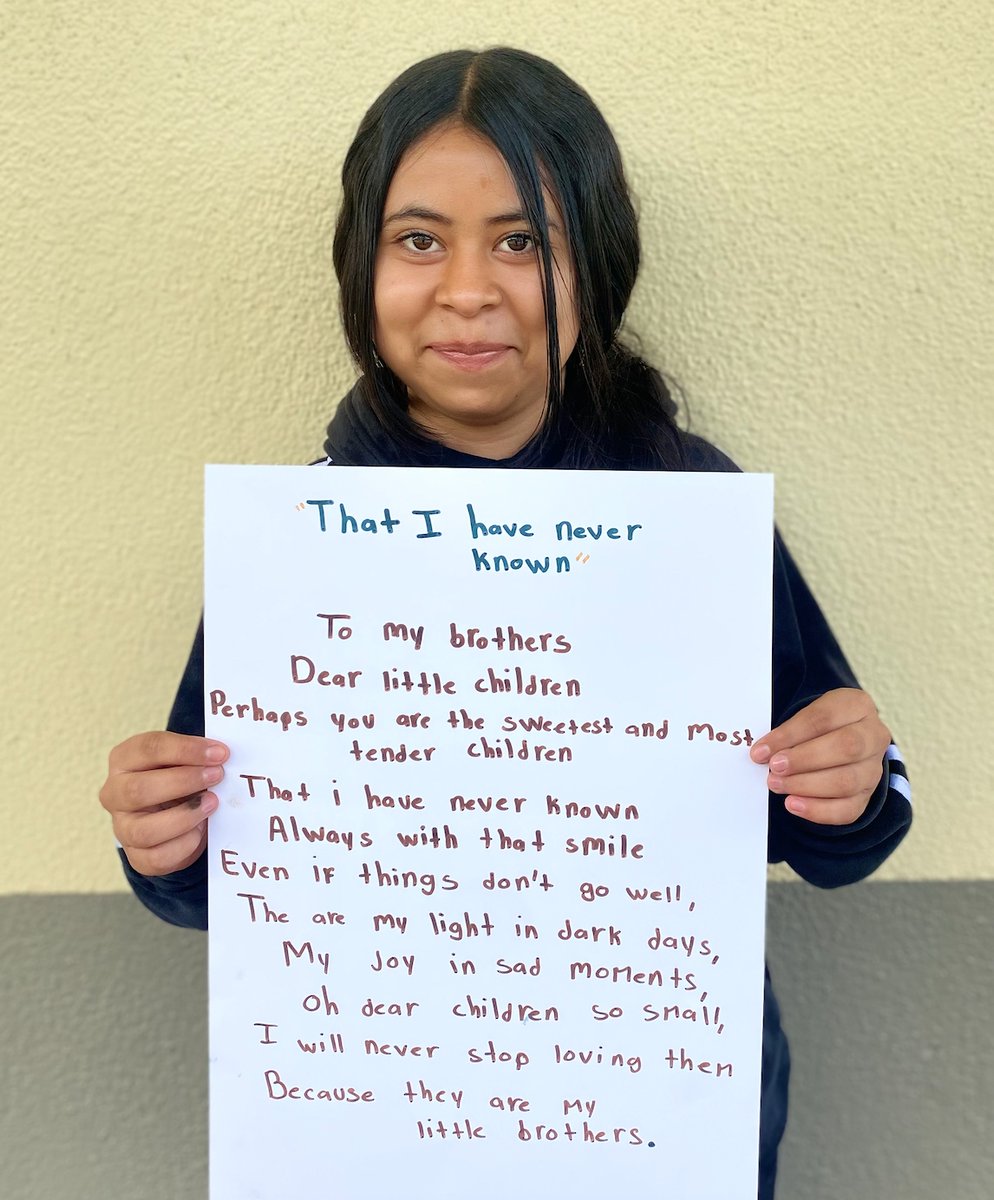 "That I have never
known"
To my brothers
Dear little children
Perhaps you are the sweetest and most
tender children
That i have never known
Always with that smile
Even if things don't go well,
The are my light in dark days,
My joy in sad moments,
oh dear children so small,
I will never stop loving them
Because they are my
little brothers.